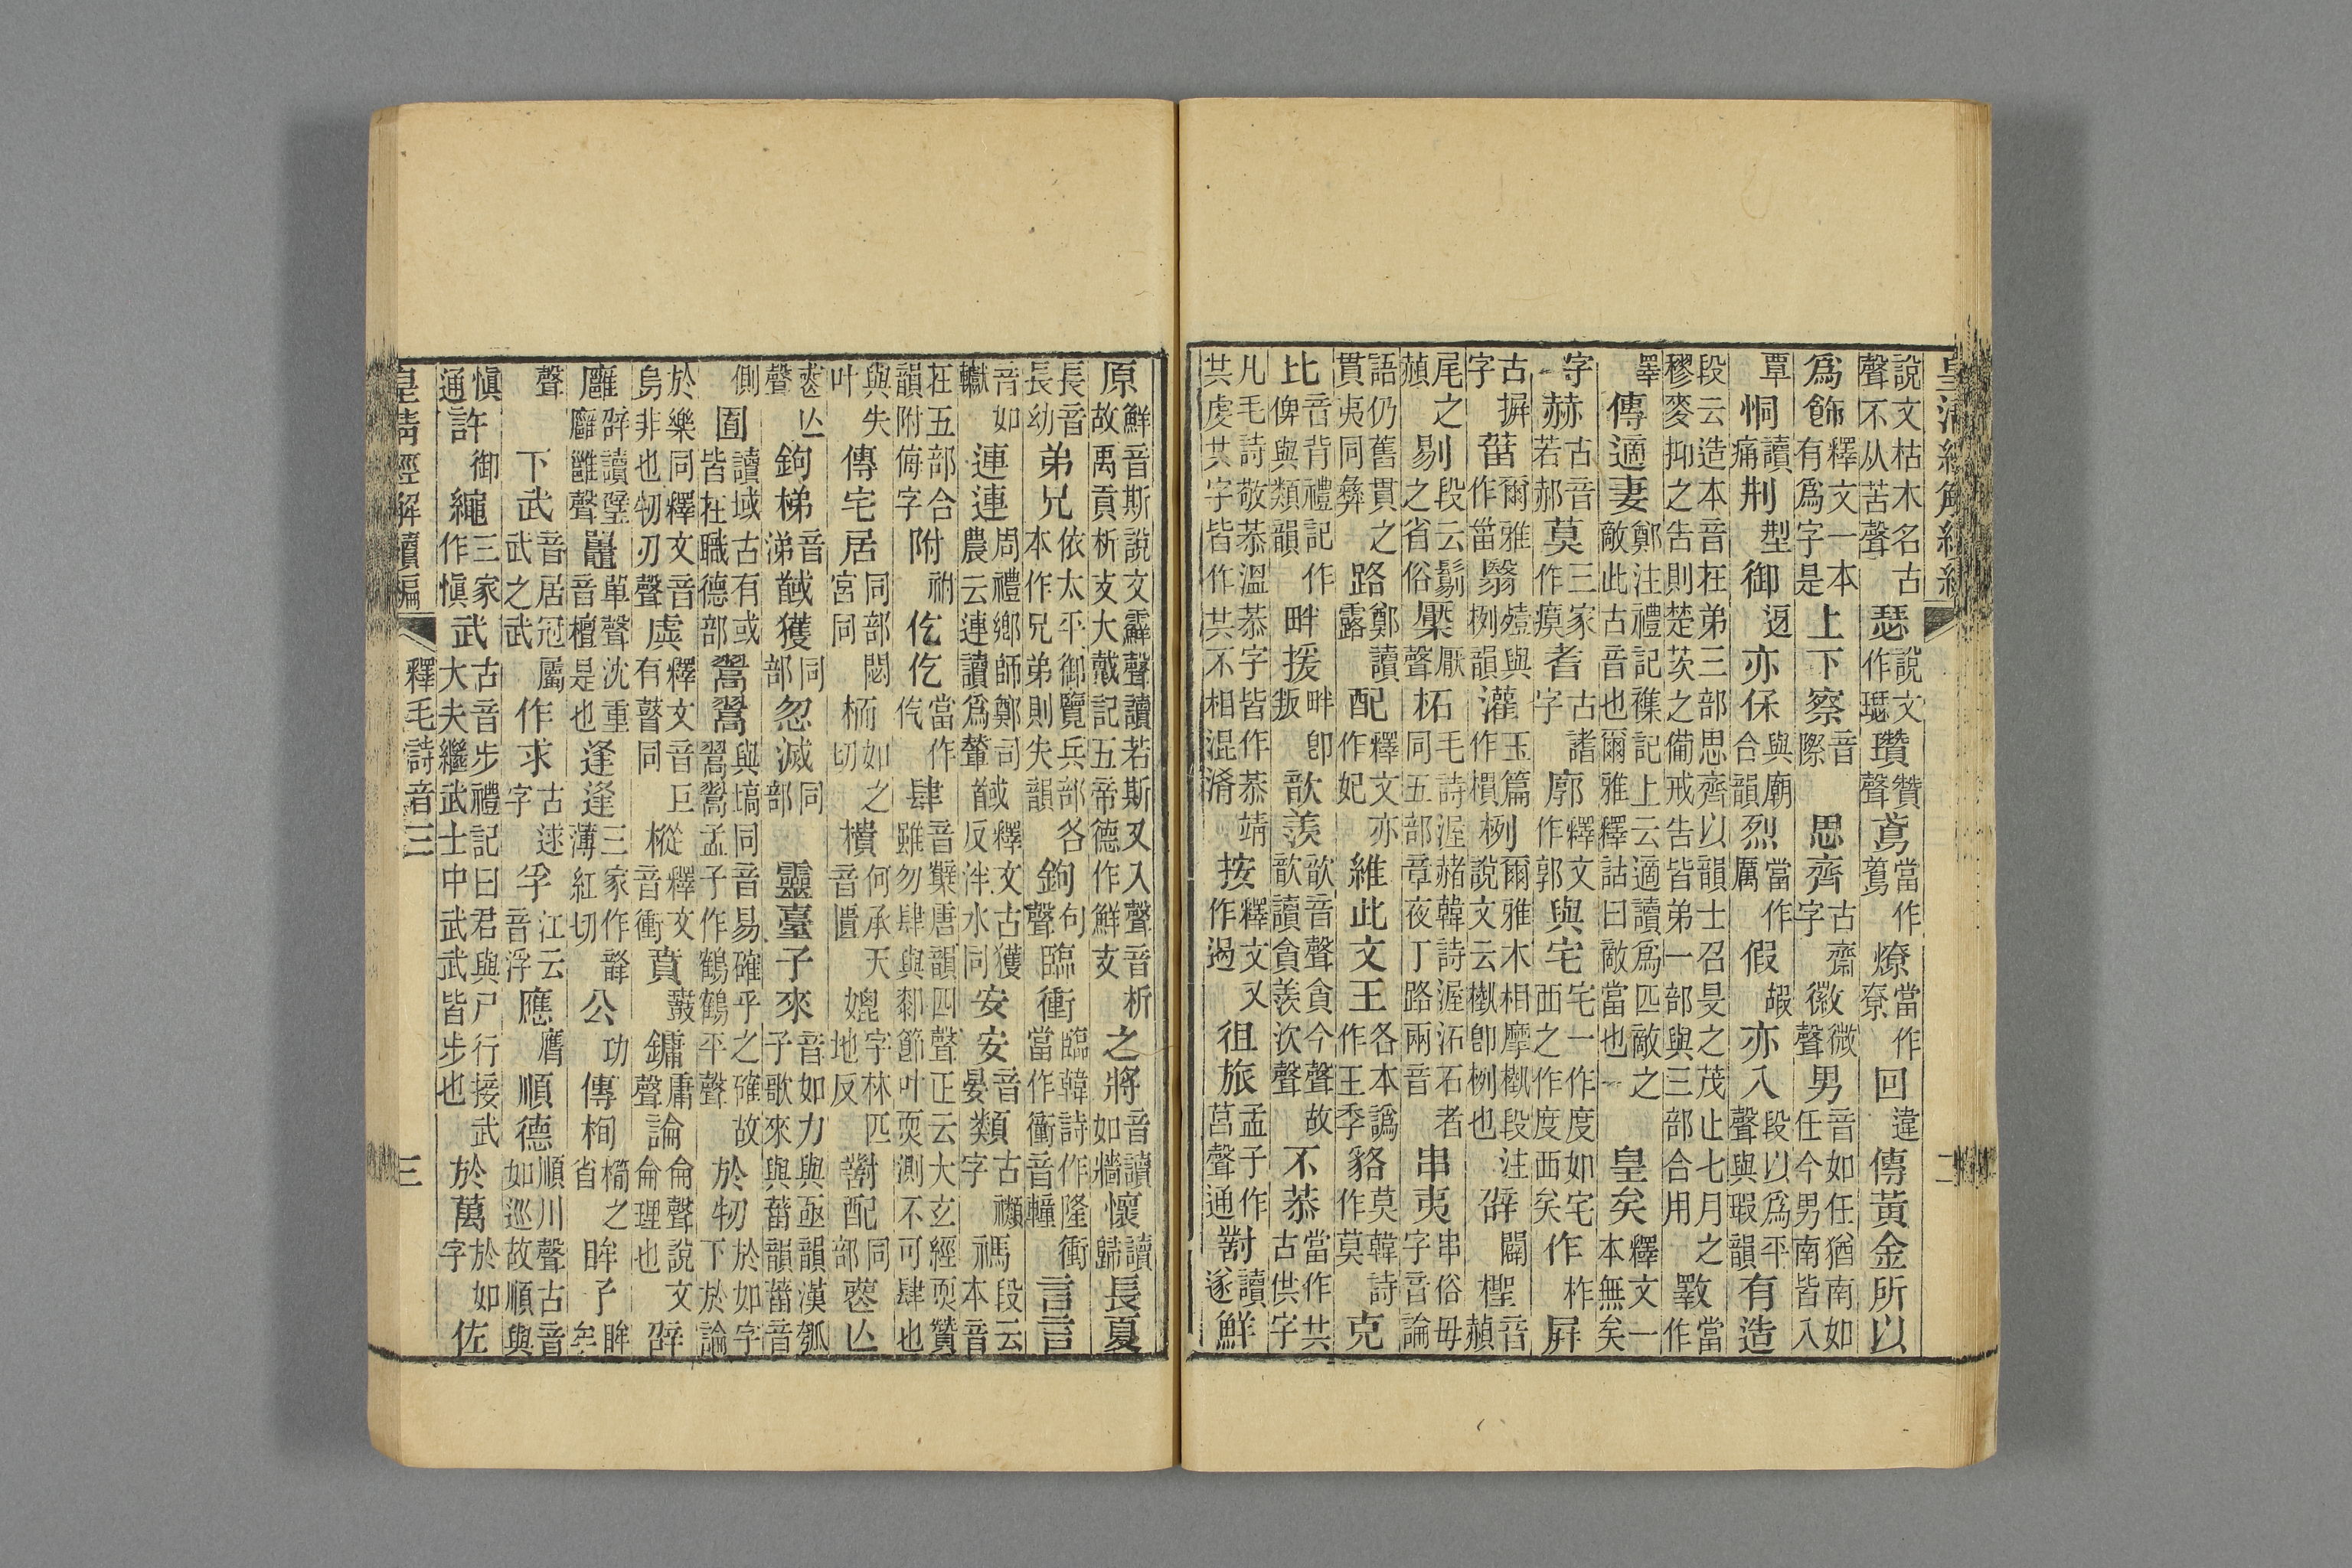 說文枯木名古聲不从苦聲瑟說文作璱瓚贊聲鳶當作䳒燎當作尞回違傳黃金所以
爲飾釋文一本有爲字是上下察音際思齊古齋字徽微聲男音如任猶南如任今男南皆入
覃恫讀痛荆型御迓亦保與廟合韻烈當作厲假嘏亦入段以爲平聲與瑕韻有造
段云造本音在弟三部思齊以韻士召旻之茂止七月之穋麥抑之告則楚茨之備戒告皆弟一部與三部合用斁當作
睪傳適妻鄭注禮記襍記上云適讀爲匹敵之敵此古音也爾雅釋詁曰敵當也皇矣釋文一本無矣
字赫古音若郝莫三家作瘼耆古諸字廓釋文作郭與宅宅一作度如宅西之作度西矣作柞屛
古摒字菑爾雅作甾翳殪與栵韻灌玉篇作樌栵爾雅木相摩槸段注說文云槸卽栵也辟闢檉音赬
尾之赬剔段云鬄之省俗檿厭聲柘毛詩渥赭韓詩渥沰石者同五部章夜丁路兩音串夷串俗毋字音論
語仍舊貫之貫夷同彝路鄭讀露配釋文亦作妃維此文王各本譌作王季貉莫韓詩作莫克
比音背禮記作俾與類韻畔援畔卽叛歆羨歆音聲貪今聲故歆讀貪羨㳄聲不恭當作共古供字
凡毛詩敬恭溫恭字皆作恭靖共虔共字皆作共不相混淆按釋文又作遏徂旅孟子作莒聲通對讀遂鮮
原鮮音斯說文霹聲讀若斯又入聲音析故禹貢析支大戴記五帝德作鮮支之將音讀如牆懷讀歸長夏
長音長幼弟兄依太平御覽兵部各本作兄弟則失韻鉤句聲臨衝臨韓詩作隆衝當作衝音轤言言
音如轍連連周禮鄉師鄭司農云連讀爲輦馘或釋文古獲反泮水同安安音晏類古禷字禡段云本音
在五部合韻附侮字附祔仡仡當作仡肆音櫱唐韻四聲正云大玄經耎贊雖勿肆與𠛬節叶耎測不可肆也
與失叶傳宅居同部同宮閟栭如之切樻何承天音匱媲字林匹地反對配同部悪亾
悪亾聲鉤梯音涕馘獲同部忽滅同部靈臺子來音如力與亟韻漢瓠子歌來與菑韻菑音
側囿讀域古有或皆在職德部翯翯與塙同音易確乎之確故翯翯孟子作鶴鶴平聲於牣於如字下於論
於樂同釋文音烏非也牣刃聲虡釋文音巨有瞽同樅從釋文音衝賁鼖鏞庸聲論侖聲說文侖理也辟
廱辟讀璧廱雝聲鼉單聲沈重音檀是也逢逢三家作韸薄紅切公功傳栒櫛之省眸子眸牟
聲下武音居冠屬武之武作求古逑字孚江云音浮應膺順德順川聲古音如巡故順與
愼通許御繩三家作愼武古音步禮記曰君與尸行接武大夫繼武士中武武皆步也於萬於如字佐
皇淸經解續編
釋毛詩音三
三
二